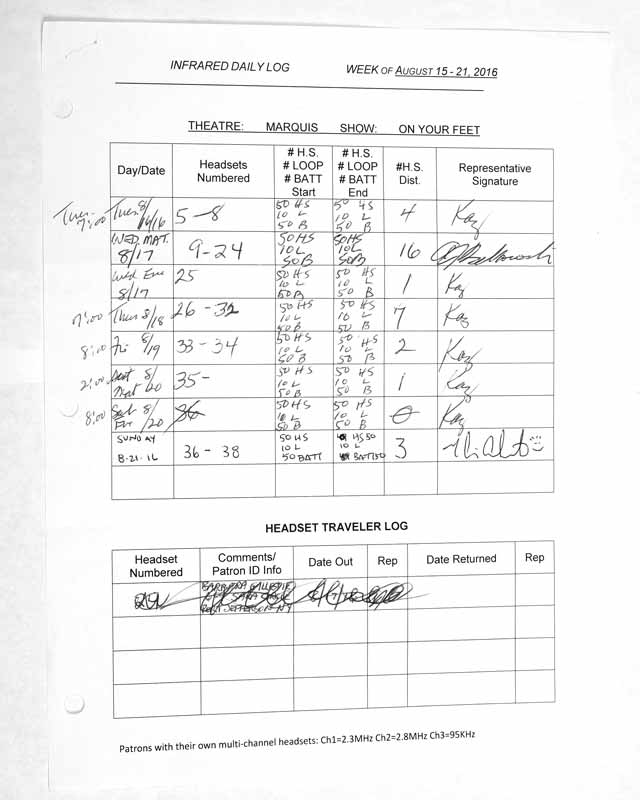 INFRARED DAILY LOG WEEK OF AUGUST 15 - 21, 2016
THEATRE: MARQUIS SHOW: ON YOUR FEET
Day/Date Headsets Numbered # H.S. # LOOP # BATT Start # H.S. # LOOP # BATT End #H.S. Dist. Representative Signature
Tues. 7:00 Tues 8/16/16 5-8 50 HS 10 L 50 B 50 HS 10 L 50 B 4 Kay
WED. MAT. 8/17 9-24 50HS 10L 50B 50HS 10L 50B 16
Wed Eve 8/17 25 50 HS 10 L 50 B 50 HS 10 L 50 B 1 Kay
7:00 Thurs 8/18 26-32 50 HS 10 L 50 B 50 HS 10 L 50 B 7 Kay
8:00 Fri 8/19 33-34 50 HS 10 L 50 B 50 HS 10 L 50 B 2 Kay
2:00 8/20 35- 50 HS 10 L 50 B 50 HS 10 L 50 B 1 Kay
8:00 8/20 36 50 HS 10 L 50 B 50 HS 10 L 50 B 0 Kay
SUNDAY 8-21-16 36-38 50 HS 10 L 50 BATT HS 50 10 L BATT 50 3
HEADSET TRAVELER LOG
Headset Numbered Comments/ Patron ID Info Date Out Rep Date Returned Rep
Patrons with their own multi-channel headsets: Ch1=2.3MHz Ch2=2.8MHz Ch3=95KHz